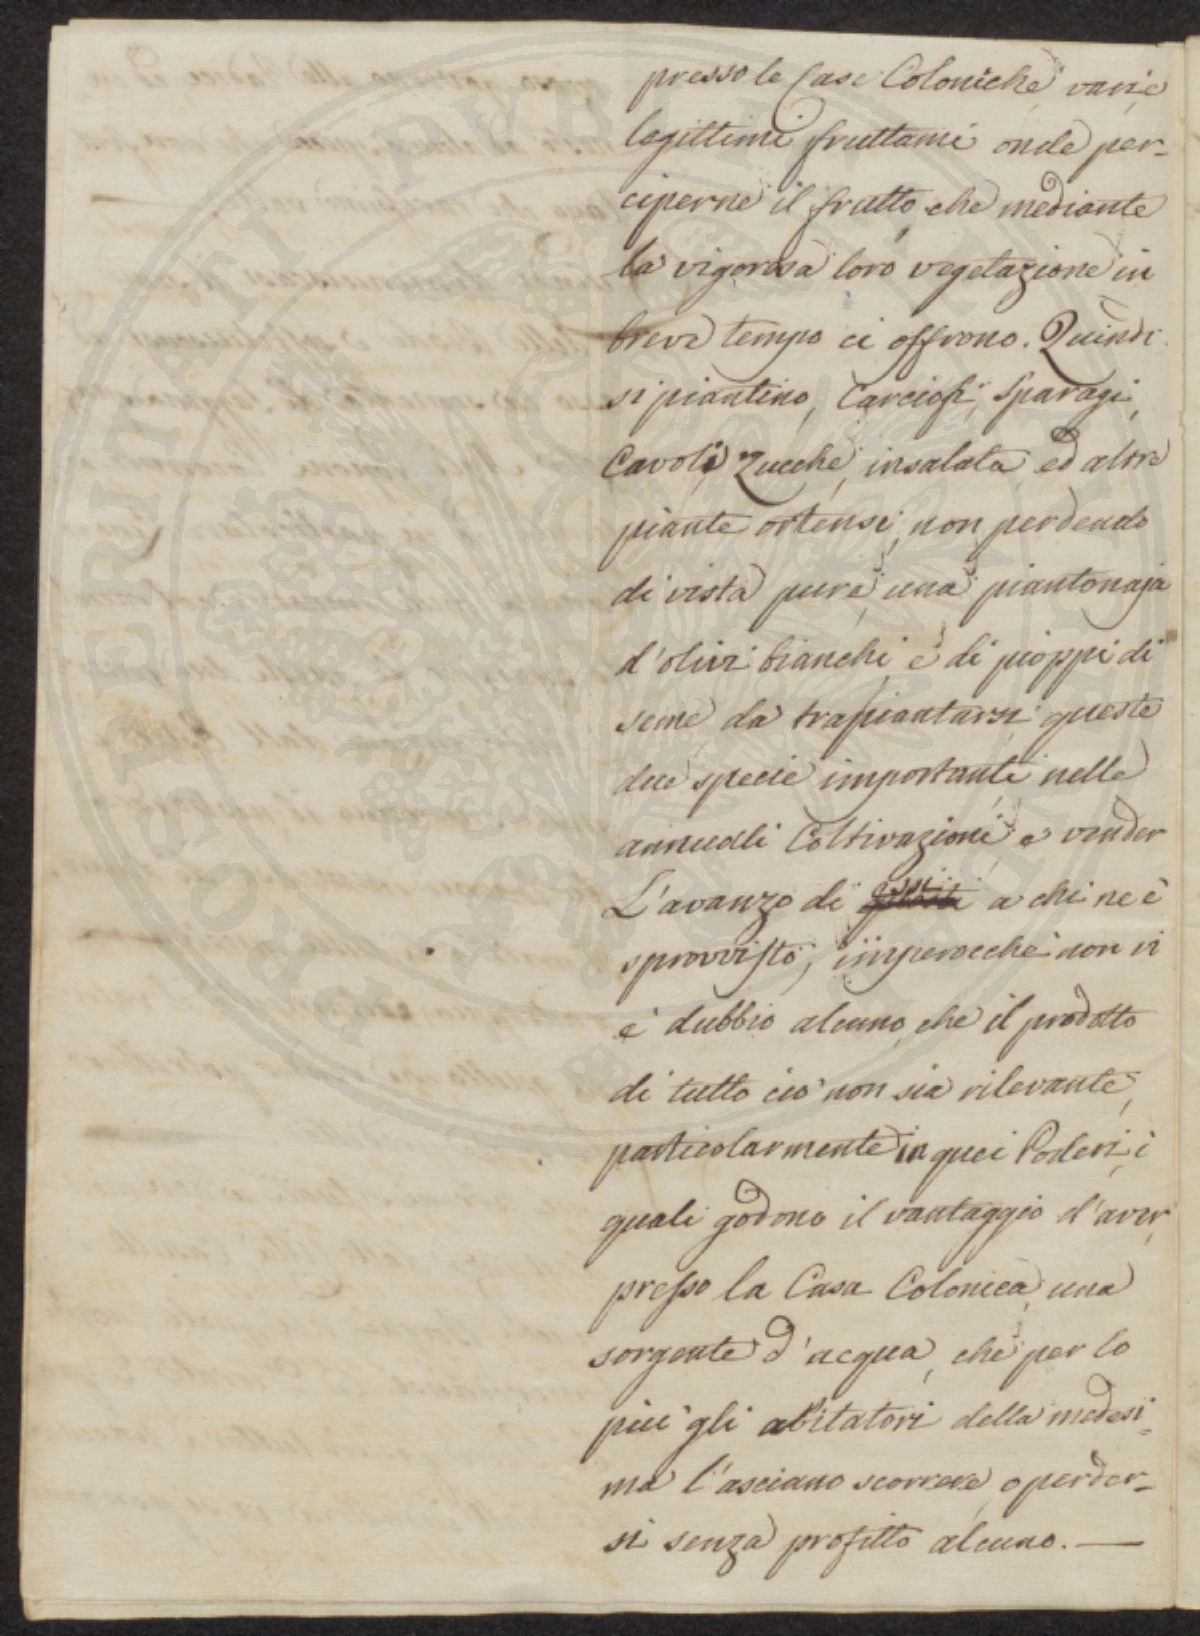 presso le Case Coloniche, varie
legittimi fruttami onde per=
ciperne il frutto, che mediante
la vigorosa loro vegetazione in
breve tempo ci offrono. Quindi
si piantino, Carciofi, Sparagi,
Cavoli, Zucche, insalata, ed altre
piante ortensi, non perdendo
di vista pure, una piantonaja
d'olivi bianchi, e di pioppi di
seme, da trapiantarsi queste
due specie importanti nelle
annuali Coltivazioni, e vender
L'avanzo di a chi ne è
sprovvisto, imperocchè non vi
è dubbio alcuno, che il prodotto
di tutto ciò non sia rilevante,
particolarmente in quei Poderi, i
quali godono il vantaggio d'aver,
presso la Casa Colonica, una
sorgente d'acqua, che per lo
più gli abitatori della medesi=
ma l'asciano scorrere, e perder=
si senza profitto alcuno. —
PROSPERITATI PUBLICAE